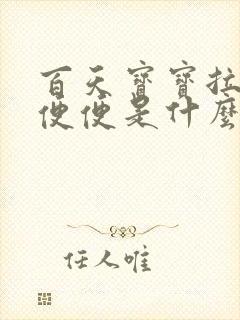 百天寶寶拉
便便是什麼
任人唯